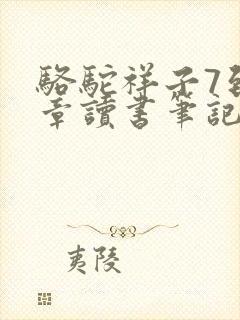 駱駝祥子7到
章讀書筆記
夷陵